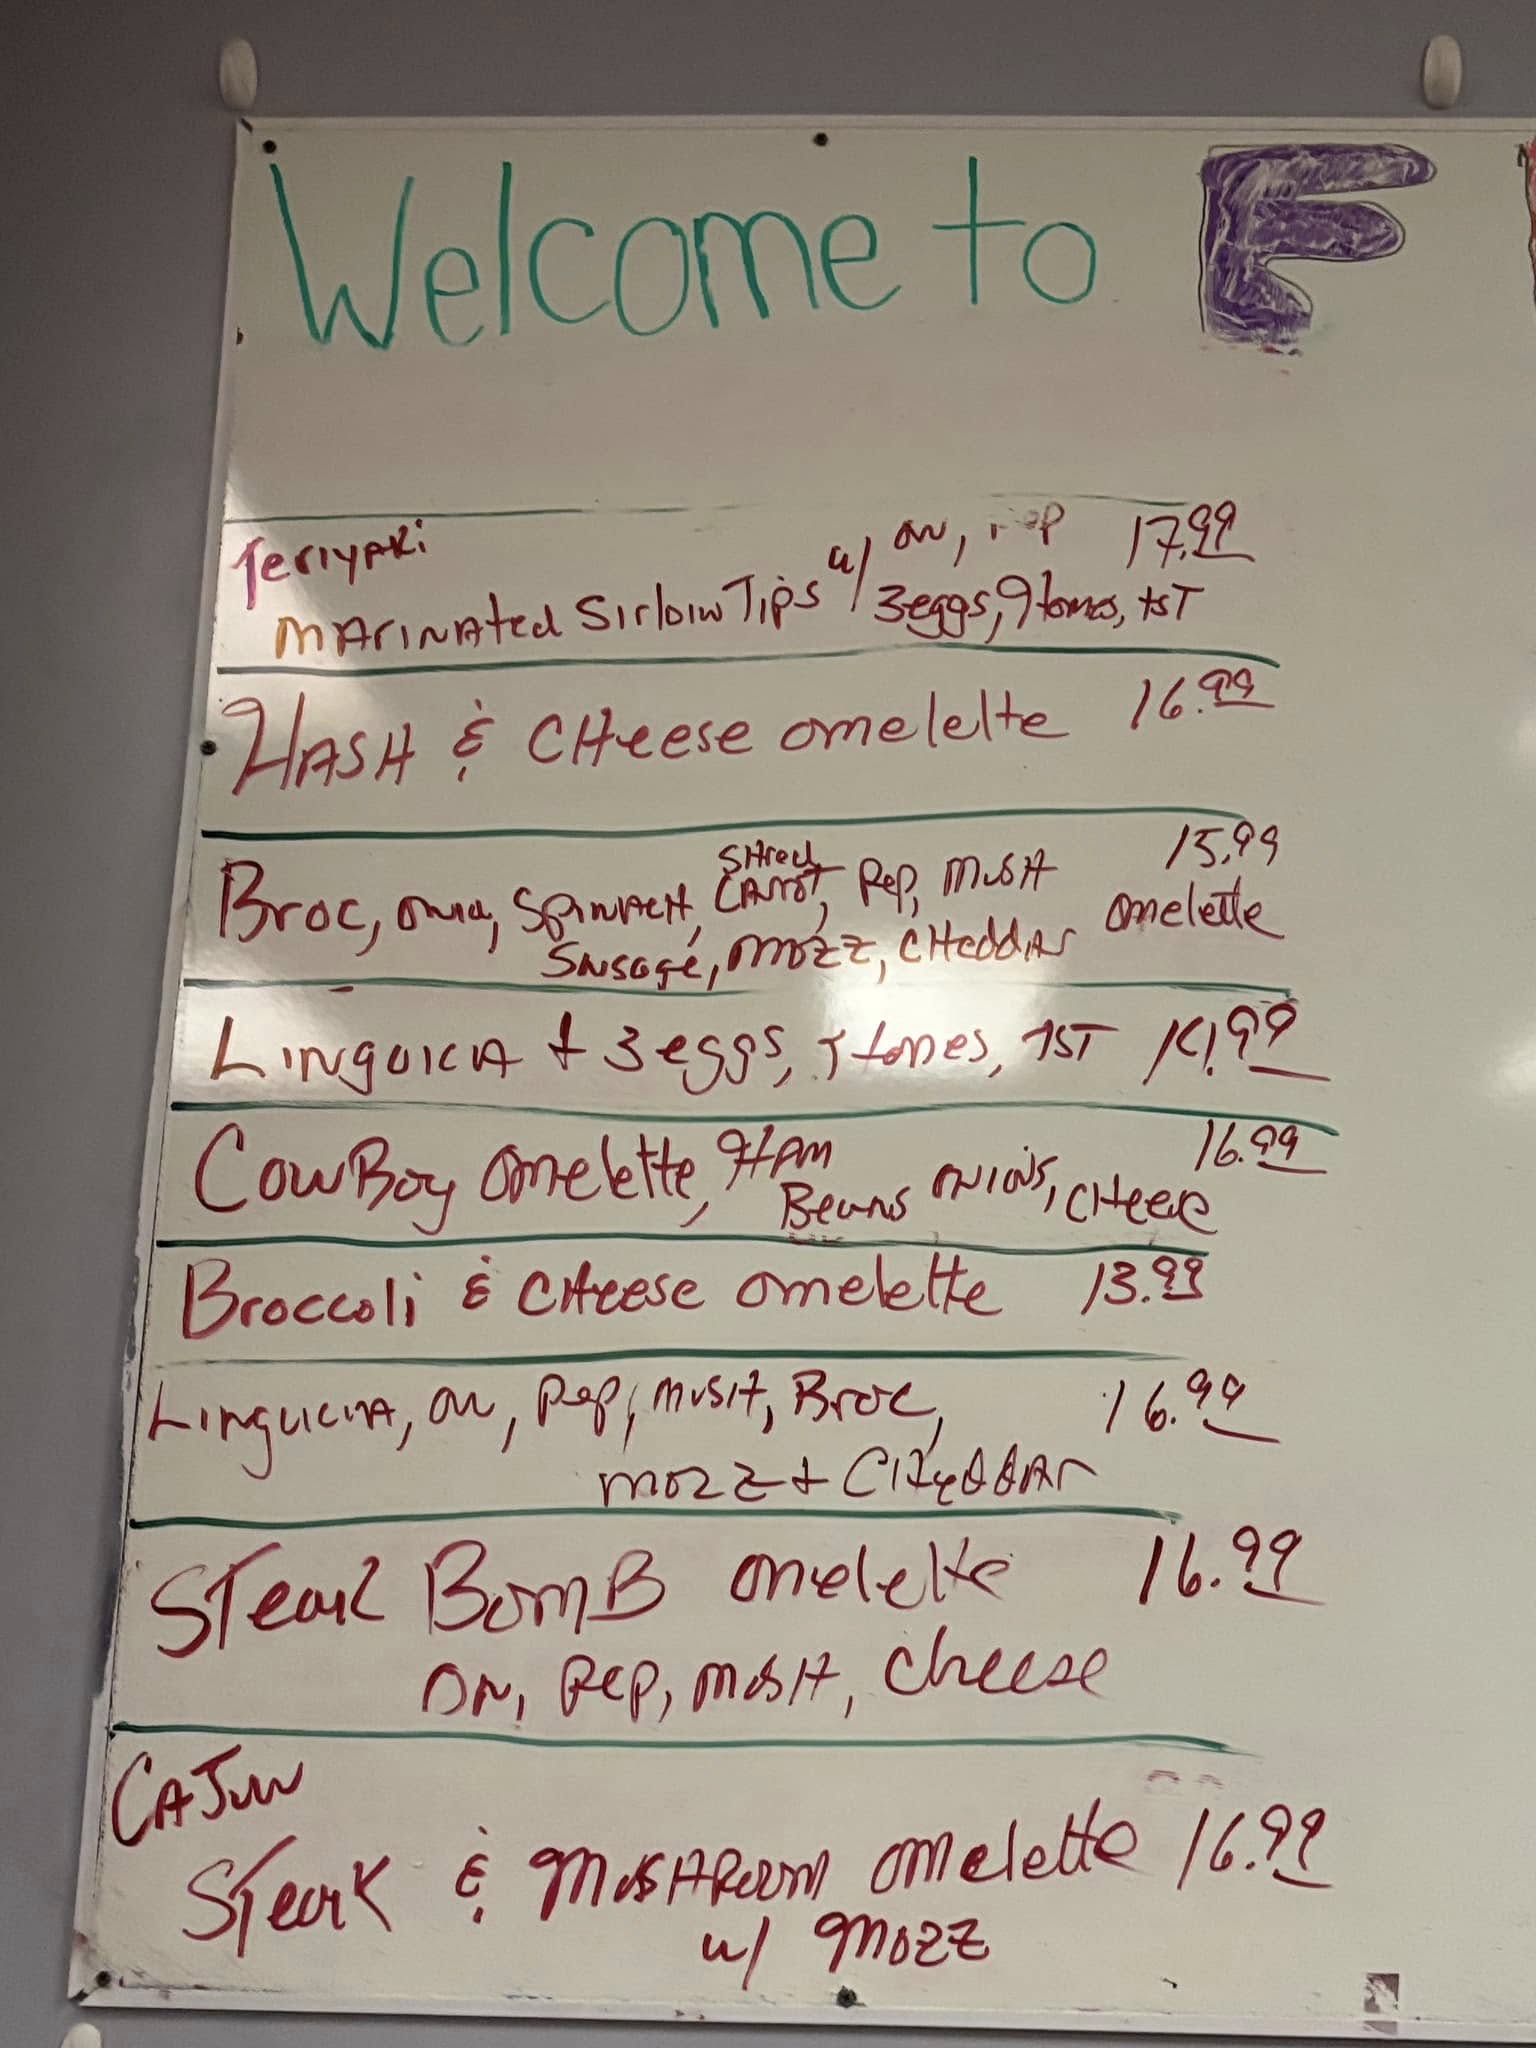 Welcome to F
Teriyaki w/ ON, PEP 17.99
MARINAted SirloiN Tips 3eggs, Homes, tST
HASH & CHeese omelette 16.99
SHred 15.99
Broc, SPINACH, CArroT, Pep, MUSH omelette
SAUSage, MOZZ, CHeddAr
LINguicA + 3 eggs, Homes, TST 14.99
CowBoy omelette, HAM 16.99
BeaNS ONIONS, CHeese
Broccoli & CHeese omelette 13.99
LINguicA, ON, Pep, MUSH, Broc, 16.99
MOZZ + CHeddAr
STeak BomB omelette 16.99
ON, Pep, MUSH, Cheese
CAJuN
STeaK & MUSHROOM omelette 16.99
w/ MOZZ